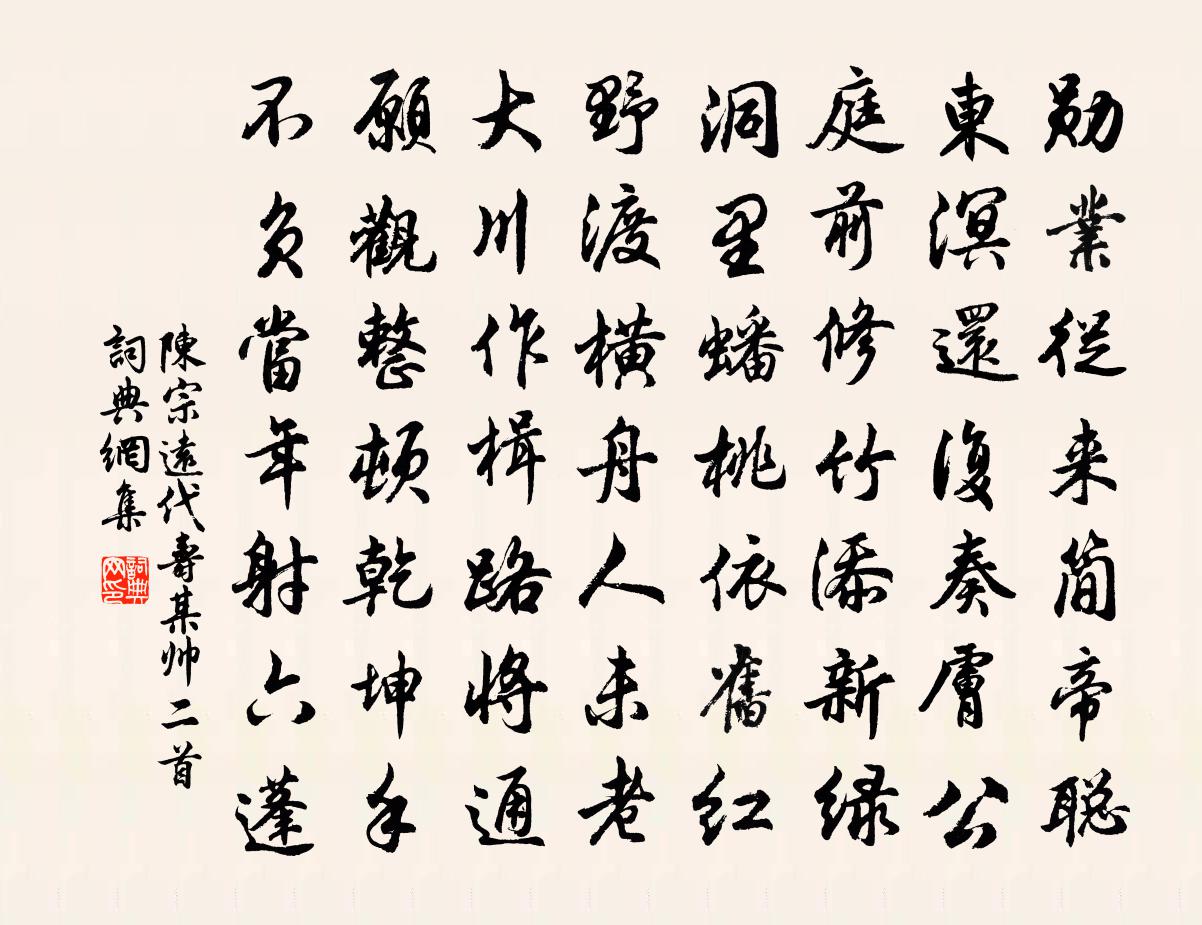 勛業從来简帝聪
東溟還復奏膚公
庭前修竹添新绿
洞里蟠桃依舊红
野渡橫舟人未老
大川作楫路將通
願觀整頓乾坤手
不負當年射六蓬
陳宗遠代壽某帅二首
詞典網集
詞典网印